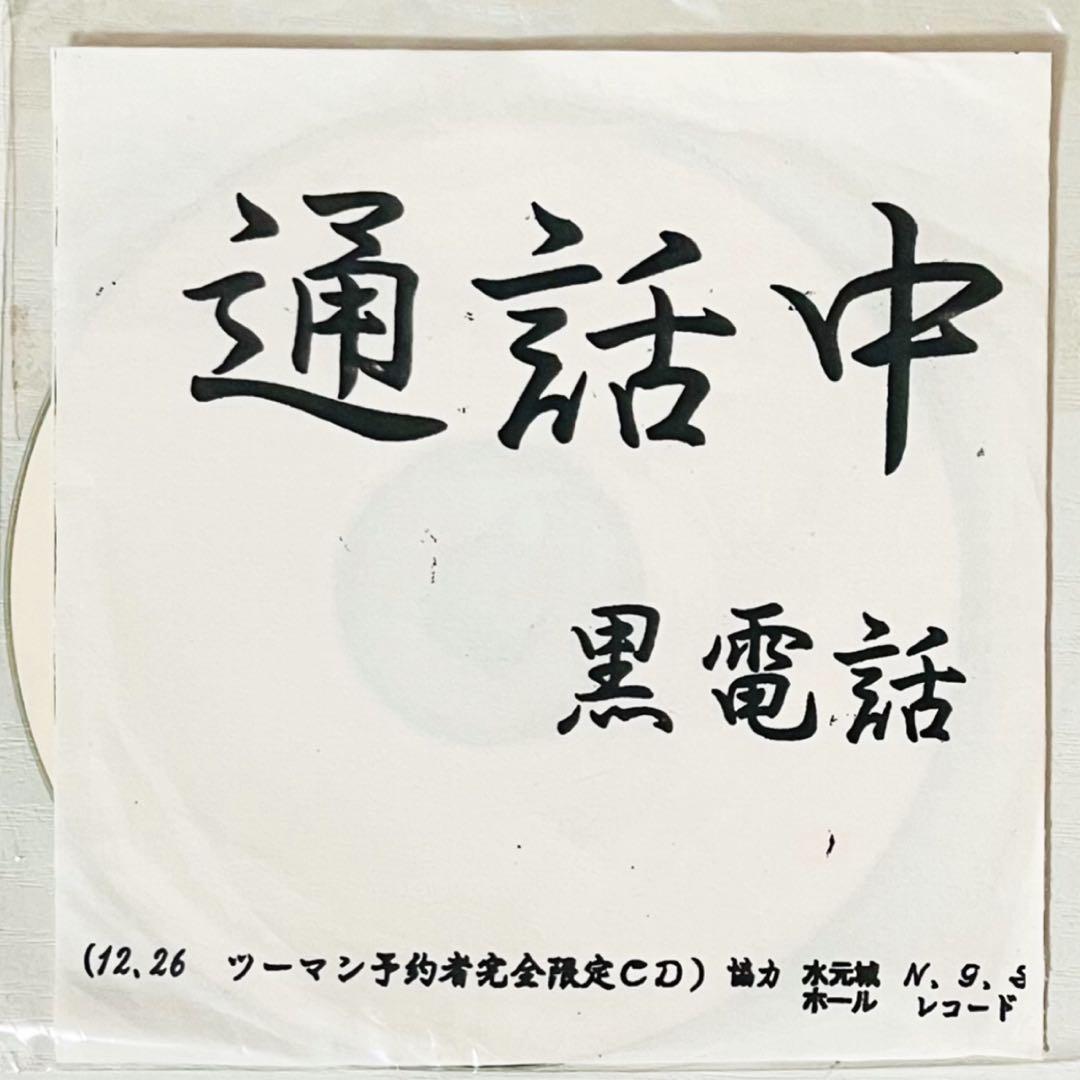 通話中
黒電話
(12、26 ツーマン予約者完全限定CD) 協力 水元城 N、g、s
ホール レコード